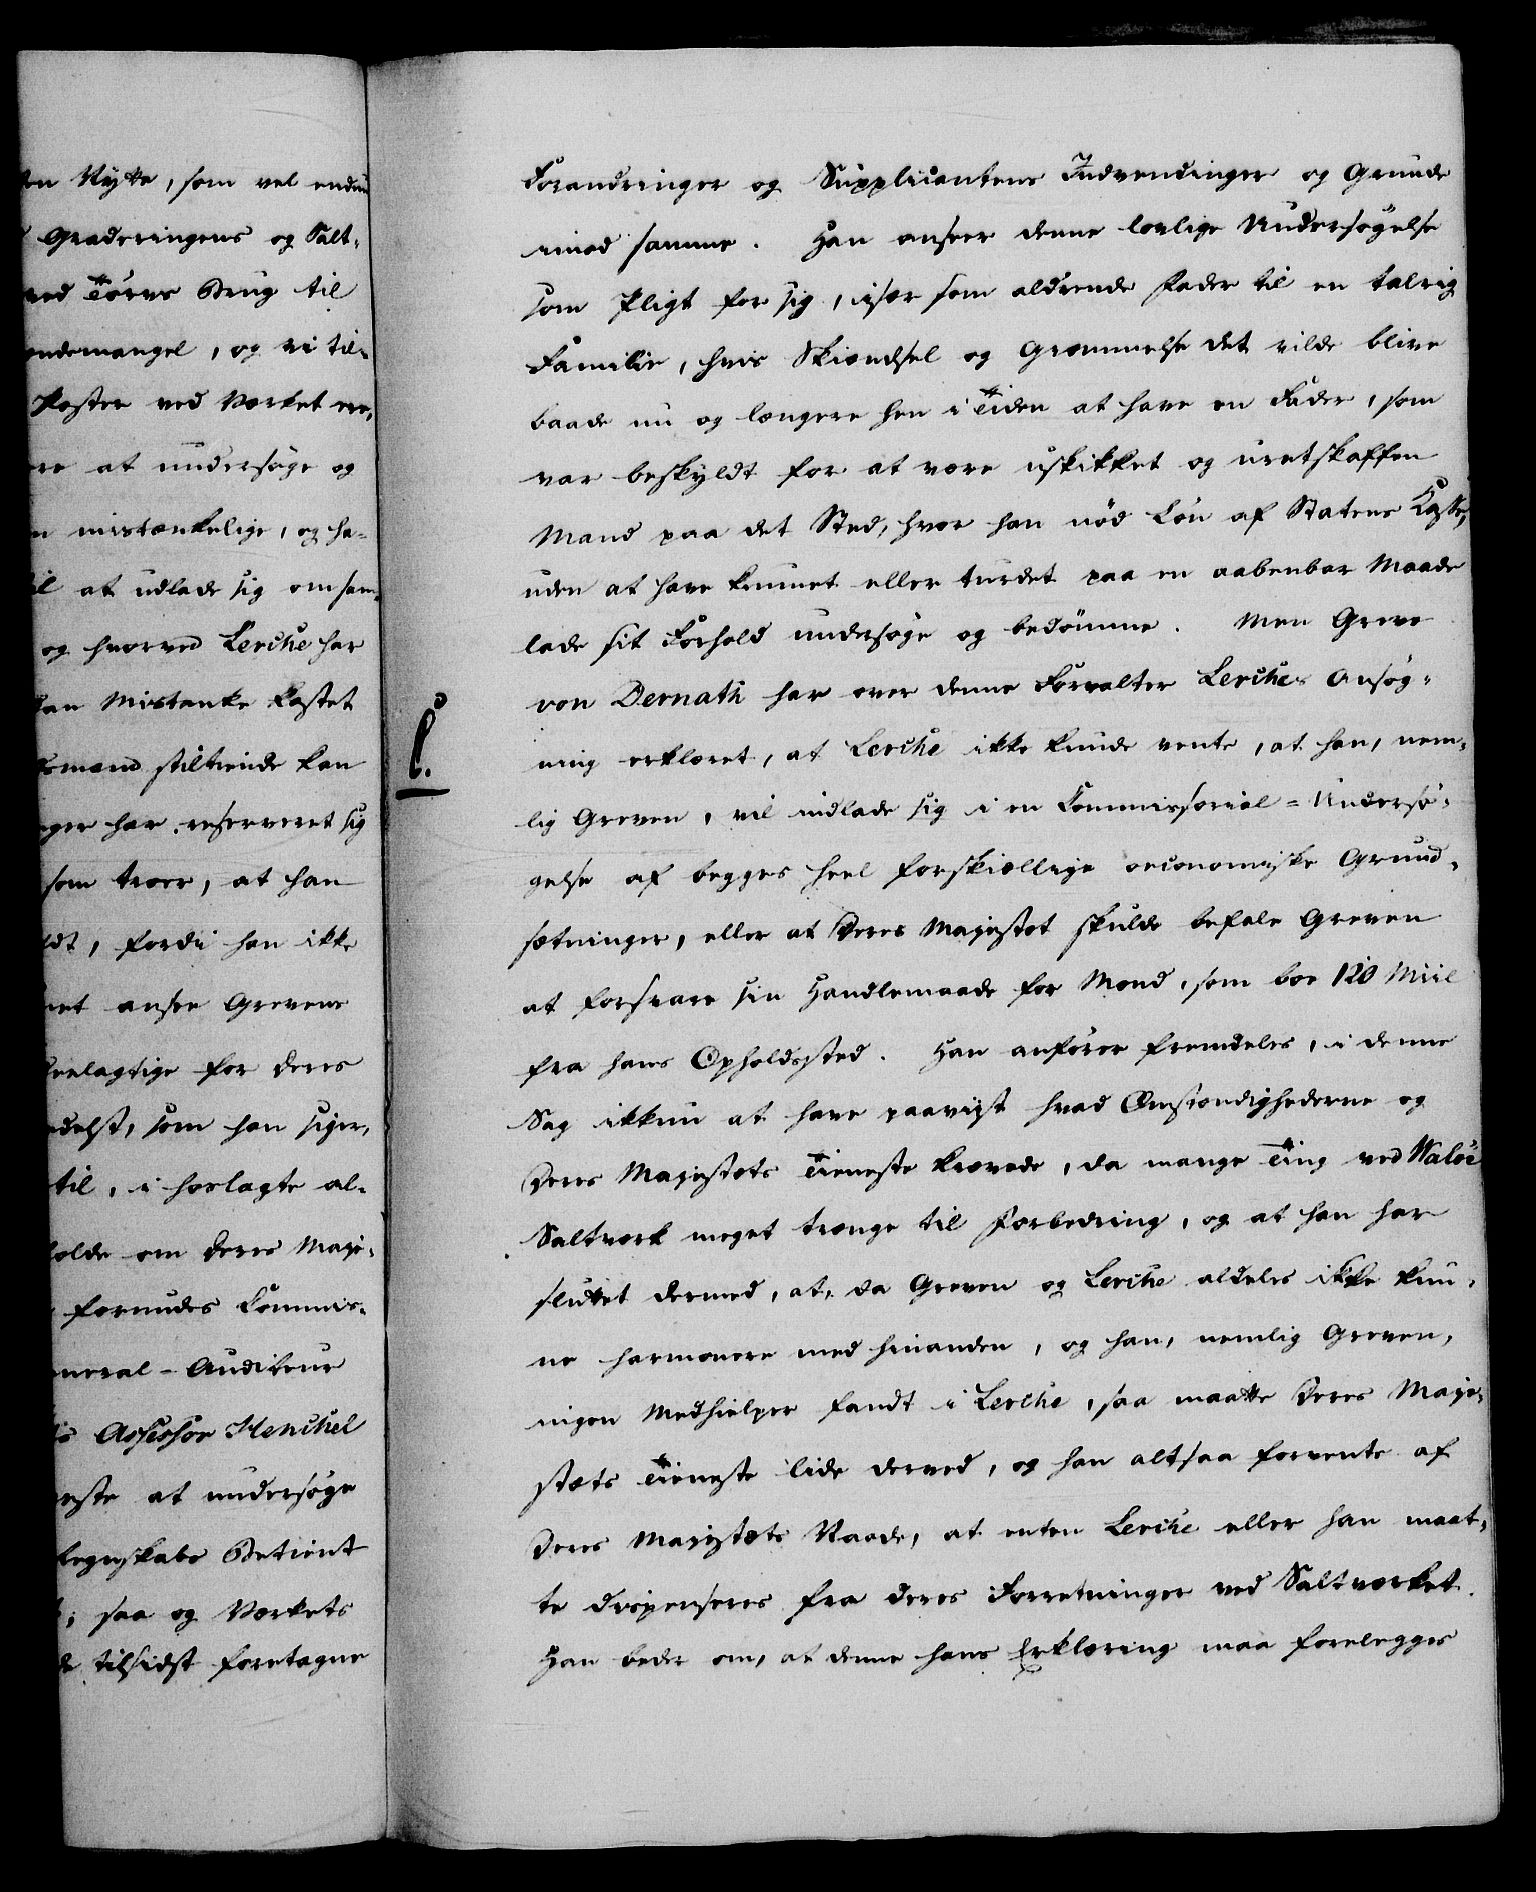 en Nytte, som vel endnu
Graderingens og Salt-
ved Törvs Brug til
endemangel, og vi til-
Poster ved Værket ere,
ere at undersøge og
n mistænkelige, og ha-
il at udlade sig om sam-
og hvorved Lerche har
an Mistanke kastet
smænd stiltiende kan
ger har reserveret sig
som troer, at han
ldt, fordi han ikke
net ansee Grevens
eelagtige for deres
edelse, som han siger,
til, i forlagte al-
olde om Deres Maje-
forundes Commis-
eneral-Auditeur
Assessor Henchel
este at undersøge
Regnskabs Betient
; saa og Værkets
de tilsidst foretagne
Forandringer og Supplicantens Indvendinger og Grunde
imod samme. Han anseer denne lovlige Undersøgelse
som Pligt for sig, især som aldrende Fader til en talrig
Familie, hvis Skiændsel og Græmmelse det vilde blive
baade nu og længere hen i Tiden at have en Fader, som
var beskyldt for at være uskikket og uretskaffen
Mand paa det Sted, hvor han nød Løn af Statens Kasse,
uden at have kunnet eller turdet paa en aabenbar Maade
lade sit Forhold undersøge og bedömme. Men Greve
von Dernath har over denne Forvalter Lerches Ansøg-
ning erklæret, at Lerche ikke kunde vente, at han, nem-
lig Greven, vil indlade sig i en Commissorial-Undersø-
gelse af begges heel forskiællige oeconomiske Grund-
sætninger, eller at Deres Majestæt skulde befale Greven
at forsvare sin Handlemaade for Mænd, som boe 120 Miil
fra hans Opholdssted. Han anfører fremdeles, i denne
Sag ikkun at have paaviist hvad Omstændighederne og
Deres Majestæts Tieneste krævede, da mange Ting ved Walöe
Saltværk meget trænge til Forbedring, og at han har
sluttet dermed, at, da Greven og Lerche aldeles ikke kun-
ne harmonere med hinanden, og han, nemlig Greven,
ingen Medhielper fandt i Lerche, saa maatte Deres Maje-
stæts Tieneste lide derved, og han altsaa forvente af
Deres Majestæts Naade, at enten Lerche eller han maat-
te dispenseres fra deres Forretninger ved Saltværket.
Han beder om, at denne hans Erklæring maa forelegges